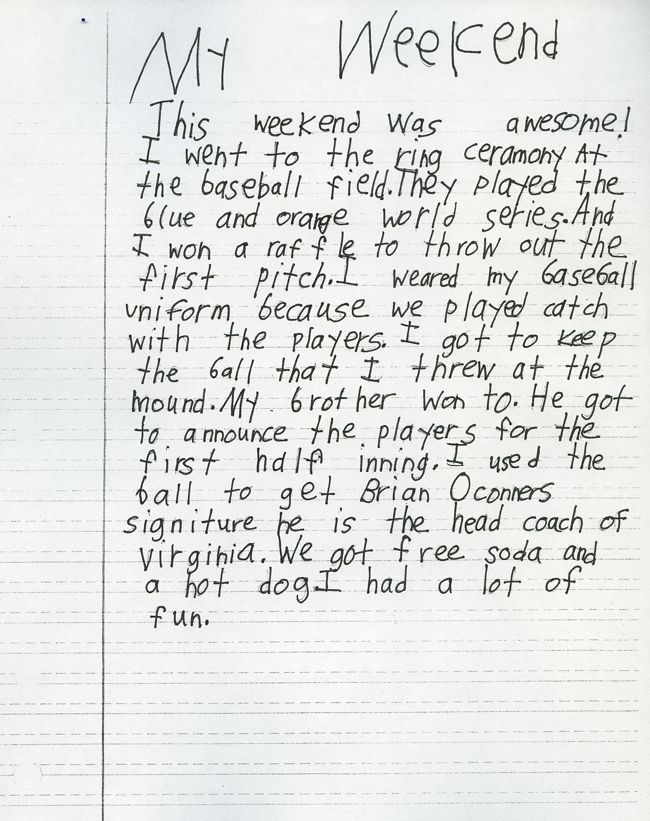 My Weekend
This weekend was awesome!
I went to the ring ceramony At
the baseball field.They played the
blue and orange world series.And
I won a raffle to throw out the
first pitch.I weared my baseball
uniform because we played catch
with the players. I got to keep
the ball that I threw at the
mound.My brother won to. He got
to announce the players for the
first half inning. I used the
ball to get Brian Oconners
signiture he is the head coach of
virginia. We got free soda and
a hot dog.I had a lot of
fun.